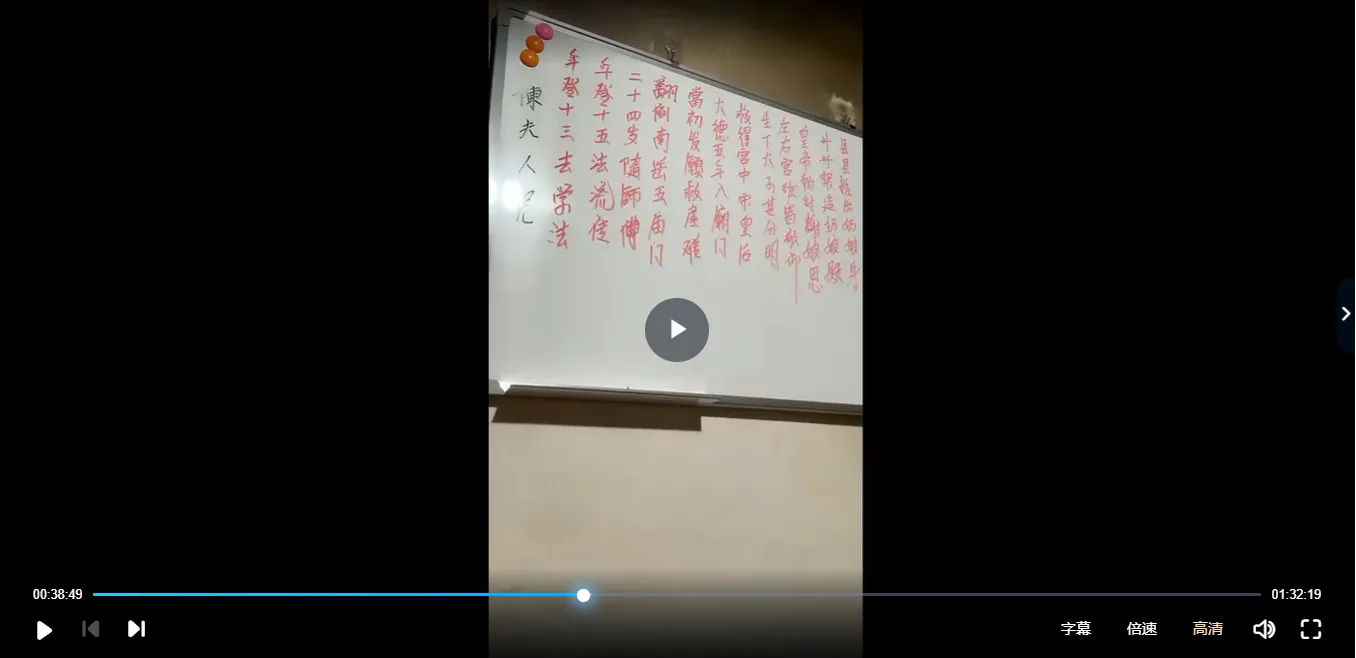 陳夫人咒
年登十三去学法
年登十五法流傳
二十四岁隨師傅
翻倒南岳五庙门
當初发願救産难
大德五年入廟门
救得宫中宋皇后
生下太子甚分明
左右宫娥皆敬仰
皇帝勅封謝娘恩
奶娘
县县 出奶娘身
00:38:49
01:32:19
字幕
倍速
高清